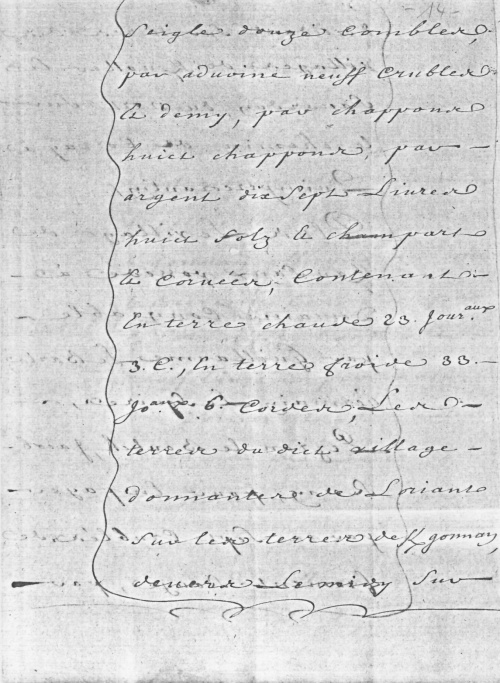 14
Seigle douze combles,
par advoine neuff crubles
& demy, par chappons
huict chappons, par –
argent dix sept Livres
huict solz & champart
& corvées, Contenant –
En terre chaude 23. Jour.aux
3. C., En terre froide 33 –
Jo.aux 6. Cordes, Les –
terres du dict village –
donnantes de Loriant
sur les terres de K/gonnay,
devers Le midy sur